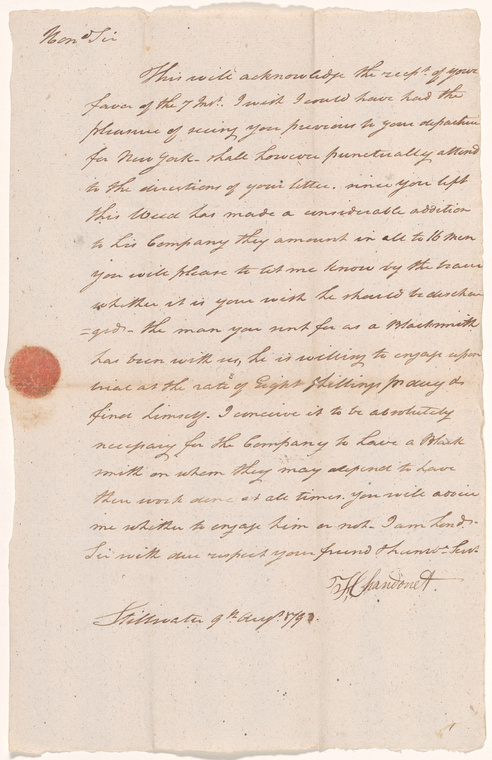 Hond Sir
This will acknowledge the recpt. of your
favor of the 7 Inst. I wish I could have had the
pleasure of seeing you previous to your departure
for New York - shall however punctually attend
to the directions of your letter. since you left
this Weed has made a considerable addition
to his Company they amount in all to 16 men
you will please to let me know by the bearer
whether it is your wish he should be dischar
=ged - the man you sent for as a Blacksmith
has been with us, he is willing to engage upon
trial at the rate of Eight Shillings pr day &
find himself. I conceive it to be absolutely
necessary for the Company to have a Black
smith on whom they may depend to have
their work done at all times. you will advise
me whether to engage him or not - I am Hond.
Sir with due respect your friend & humb Servt
Chandonet.
Stillwater 9th Augt. 179